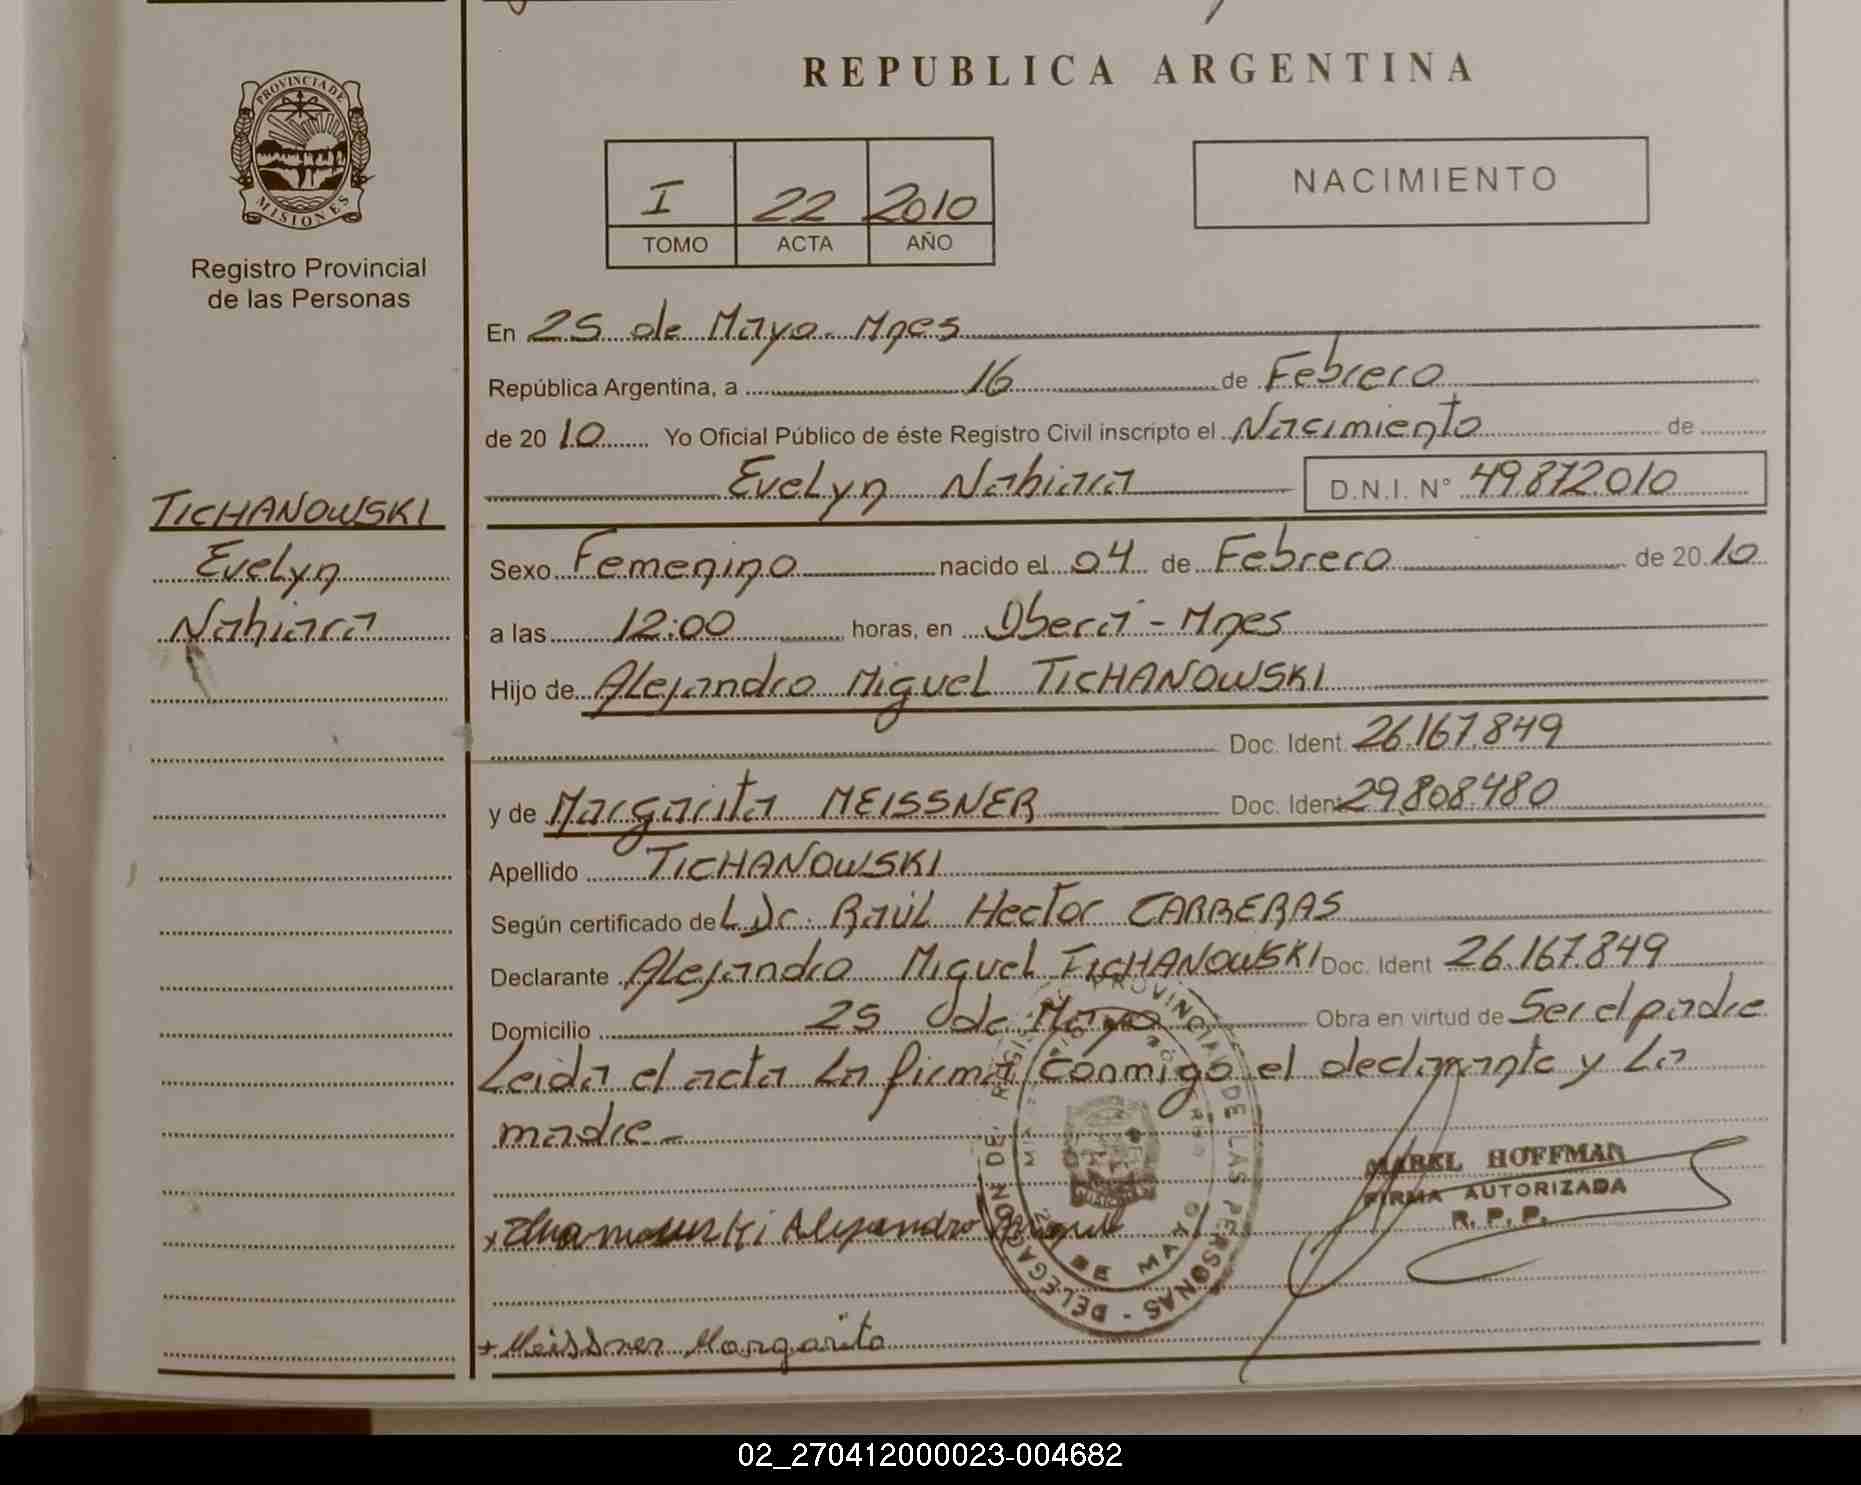 REPUBLICA ARGENTINA
PROVINCIA DE
MISIONES
Registro Provincial
de las Personas
I 22 2010
TOMO ACTA AÑO
NACIMIENTO
TICHANOWSKI
Evelyn
Nahiara
En 25 de Mayo - Mnes
República Argentina, a 16 de Febrero
de 20 10 Yo Oficial Público de éste Registro Civil inscripto el Nacimiento de
Evelyn Nahiara D.N.I. N° 49.872.010
Sexo Femenino nacido el 04 de Febrero de 20 10
a las 12:00 horas, en Oberá - Mnes
Hijo de Alejandro Miguel TICHANOWSKI
Doc. Ident. 26.167.849
y de Margarita MEISSNER Doc. Ident 29.808.480
Apellido TICHANOWSKI
Según certificado de Raúl Hector CARRERAS
Declarante Alejandro Miguel TICHANOWSKI Doc. Ident 26.167.849
Domicilio 25 de Mayo Obra en virtud de Ser el padre
Leida el acta la firma conmigo el declarante y la
madre -
MABEL HOFFMAN
FIRMA AUTORIZADA
R. P. P.
PROVINCIAL DE LAS PERSONAS - DELEGACION DE
DE MAYO
Alejandro Miguel
+ Meissner Margarita
02_270412000023-004682